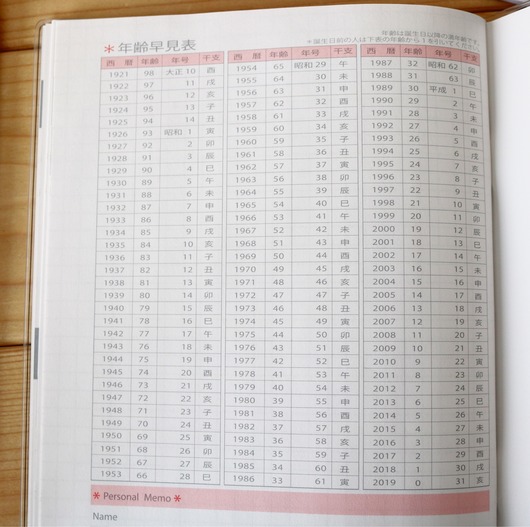 年齢は誕生日以降の満年齢です。
＊年齢早見表
＊誕生日前の人は下表の年齢から1を引いてください。
西 暦 年齢 年号 干支
1921 98 大正 10 酉
1922 97 11 戌
1923 96 12 亥
1924 95 13 子
1925 94 14 丑
1926 93 昭和 1 寅
1927 92 2 卯
1928 91 3 辰
1929 90 4 巳
1930 89 5 午
1931 88 6 未
1932 87 7 申
1933 86 8 酉
1934 85 9 戌
1935 84 10 亥
1936 83 11 子
1937 82 12 丑
1938 81 13 寅
1939 80 14 卯
1940 79 15 辰
1941 78 16 巳
1942 77 17 午
1943 76 18 未
1944 75 19 申
1945 74 20 酉
1946 73 21 戌
1947 72 22 亥
1948 71 23 子
1949 70 24 丑
1950 69 25 寅
1951 68 26 卯
1952 67 27 辰
1953 66 28 巳
西 暦 年齢 年号 干支
1954 65 昭和 29 午
1955 64 30 未
1956 63 31 申
1957 62 32 酉
1958 61 33 戌
1959 60 34 亥
1960 59 35 子
1961 58 36 丑
1962 57 37 寅
1963 56 38 卯
1964 55 39 辰
1965 54 40 巳
1966 53 41 午
1967 52 42 未
1968 51 43 申
1969 50 44 酉
1970 49 45 戌
1971 48 46 亥
1972 47 47 子
1973 46 48 丑
1974 45 49 寅
1975 44 50 卯
1976 43 51 辰
1977 42 52 巳
1978 41 53 午
1979 40 54 未
1980 39 55 申
1981 38 56 酉
1982 37 57 戌
1983 36 58 亥
1984 35 59 子
1985 34 60 丑
1986 33 61 寅
西 暦 年齢 年号 干支
1987 32 昭和 62 卯
1988 31 63 辰
1989 30 平成 1 巳
1990 29 2 午
1991 28 3 未
1992 27 4 申
1993 26 5 酉
1994 25 6 戌
1995 24 7 亥
1996 23 8 子
1997 22 9 丑
1998 21 10 寅
1999 20 11 卯
2000 19 12 辰
2001 18 13 巳
2002 17 14 午
2003 16 15 未
2004 15 16 申
2005 14 17 酉
2006 13 18 戌
2007 12 19 亥
2008 11 20 子
2009 10 21 丑
2010 9 22 寅
2011 8 23 卯
2012 7 24 辰
2013 6 25 巳
2014 5 26 午
2015 4 27 未
2016 3 28 申
2017 2 29 酉
2018 1 30 戌
2019 0 31 亥
＊ Personal Memo ＊
Name